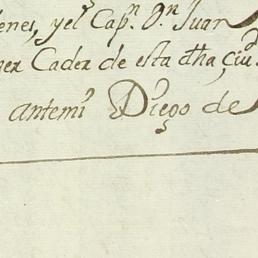 enes, y el Capn. Dn Juan
ner Cader de esta dha çiu
antemi Diego de